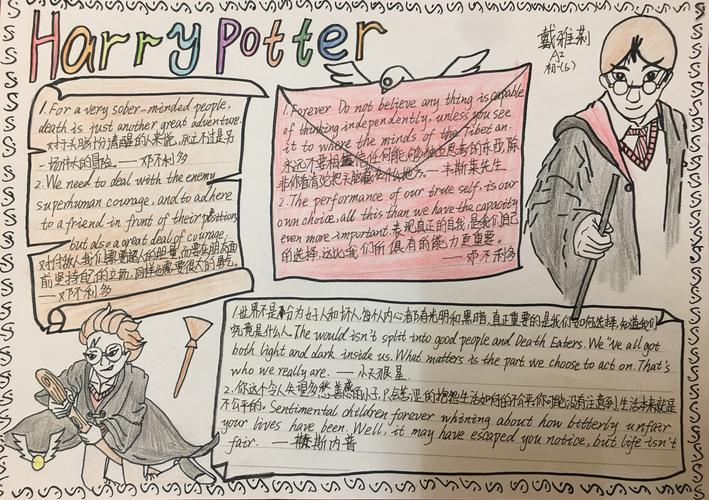 Harry Potter
戴雅莉
A2
初一(6)
1. For a very sober-minded people,
death is just another great adventure.
对于头脑十分清醒的人来说,死亡不过是另
一场伟大的冒险。——邓不利多
2. We need to deal with the enemy
superhuman courage, and to adhere
to a friend in front of their positions
but also a great deal of courage.
对付敌人我们需要超人的胆量,而要在朋友面
前坚持自己的立场,同样也需要很大的勇气。
——邓不利多
1. Forever Do not believe any thing is capable
of thinking independently, unless you see
it to where the minds of the Tibetan.
永远不要相信任何能够独立思考的东西,除
非你看清它把头脑藏在什么地方。——韦斯莱先生
2. The performance of our true self, is our
own choice, all this than we have the capacity
even more important. 表现真正的自我,是我们自己
的选择,这比我们所具有的能力更重要。
——邓不利多
1. 世界不是分为好人和坏人,每个人内心都有光明和黑暗,真正重要的是我们如何选择,知道我们
究竟是什么人. The would isn't split into good people and Death Eaters. We"ve all got
both light and dark inside us. What matters is the part we choose to act on. That's
who we really are. ——小天狼星
2. 你这个令人失望多愁善感的小子,只会苦涩的抱怨生活如何的不公平,你可能没有注意到,生活本来就是
不公平的。Sentimental children forever whining about how bitterly unfair
your lives have been. Well, it may have escaped you notice, but life isn't
fair. ——斯内普